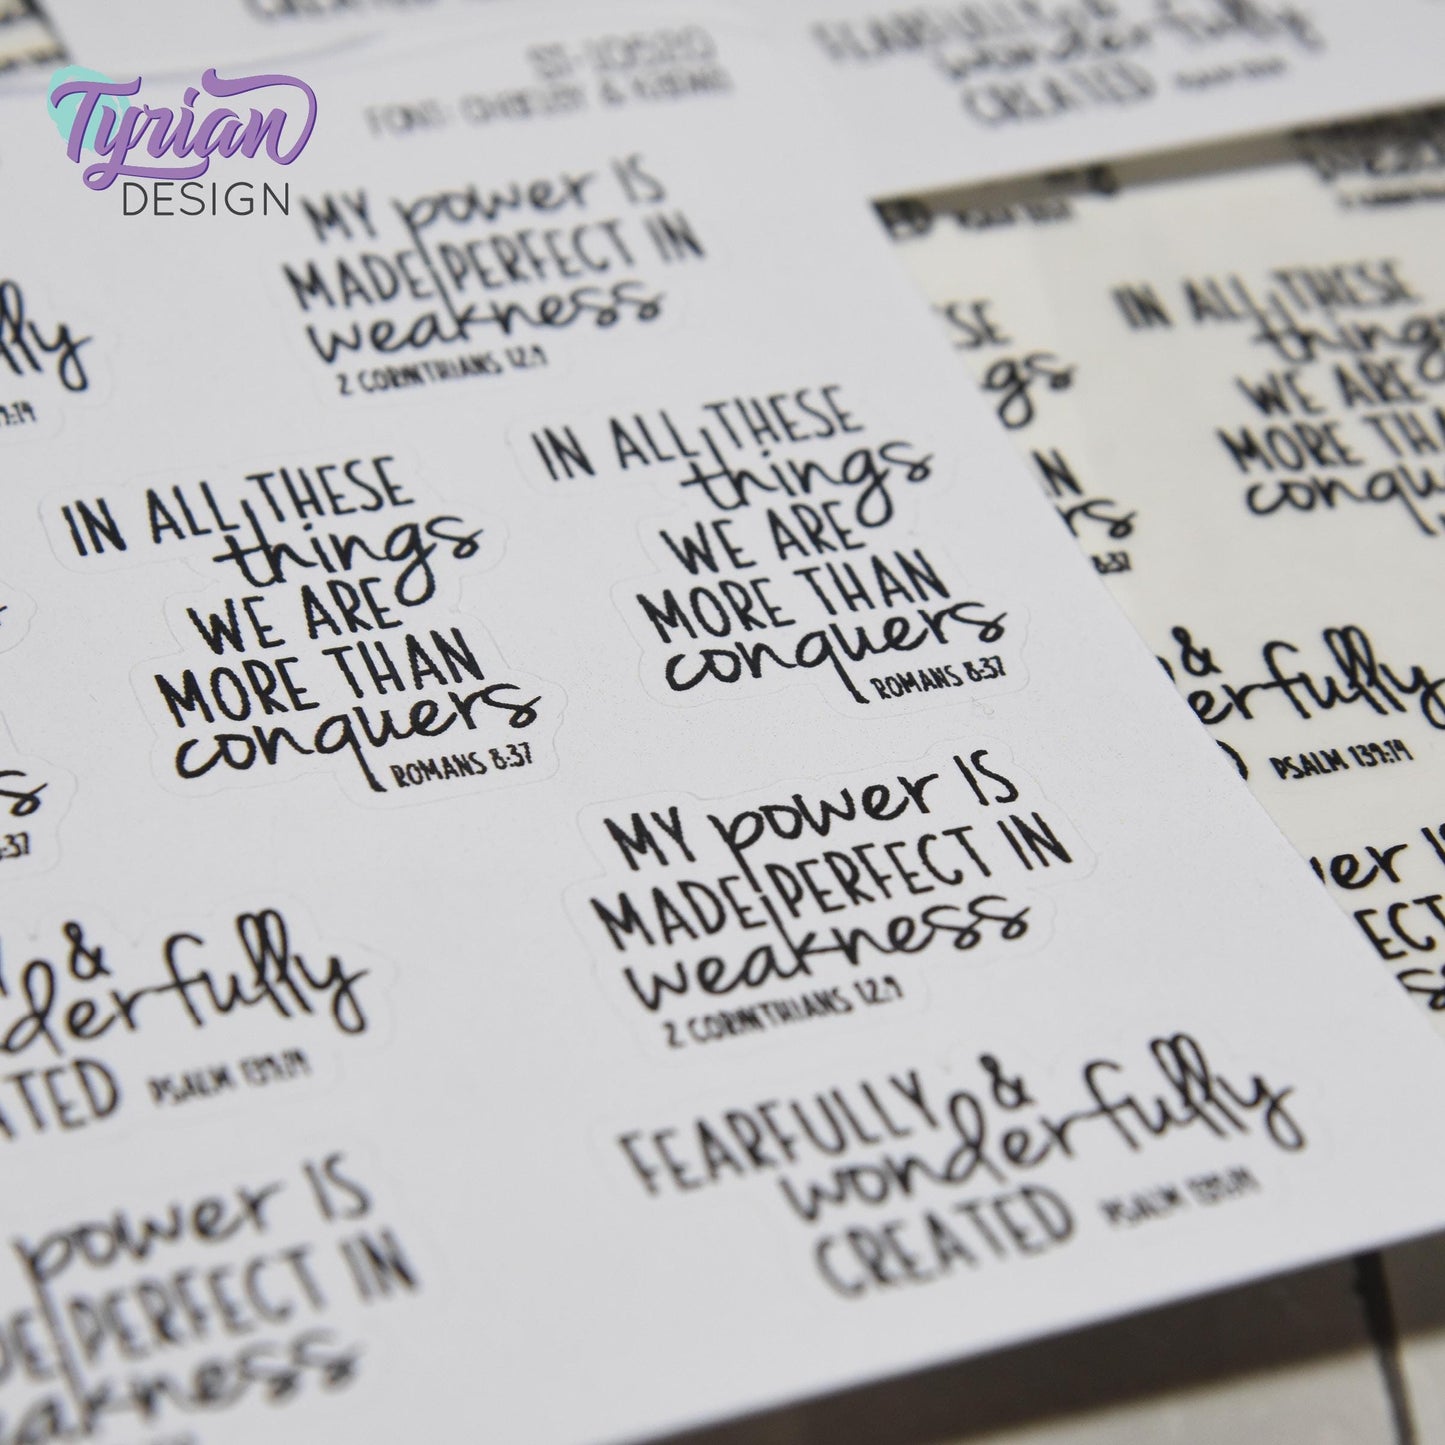 CREATED
FEARFULLY &
wonderfully
CREATED
Tyrian
DESIGN
MY power IS
MADE PERFECT IN
weakness
2 CORINTHIANS 12:9
IN ALL THESE
things
WE ARE
MORE THAN
conquers
ROMANS 8:37
IN ALL THESE
things
WE ARE
MORE THAN
conquers
ROMANS 8:37
MY power IS
MADE PERFECT IN
weakness
2 CORINTHIANS 12:9
FEARFULLY &
wonderfully
CREATED PSALM 139:14
&
derfully
TED PSALM 139:14
power IS
DE PERFECT IN
eakness
lly
9:14
s
:37
IN ALL THESE
things
WE ARE
MORE THA
conqu
SE
gs
N
rs
8:37
&
erfully
PSALM 139:14
er I
ECT